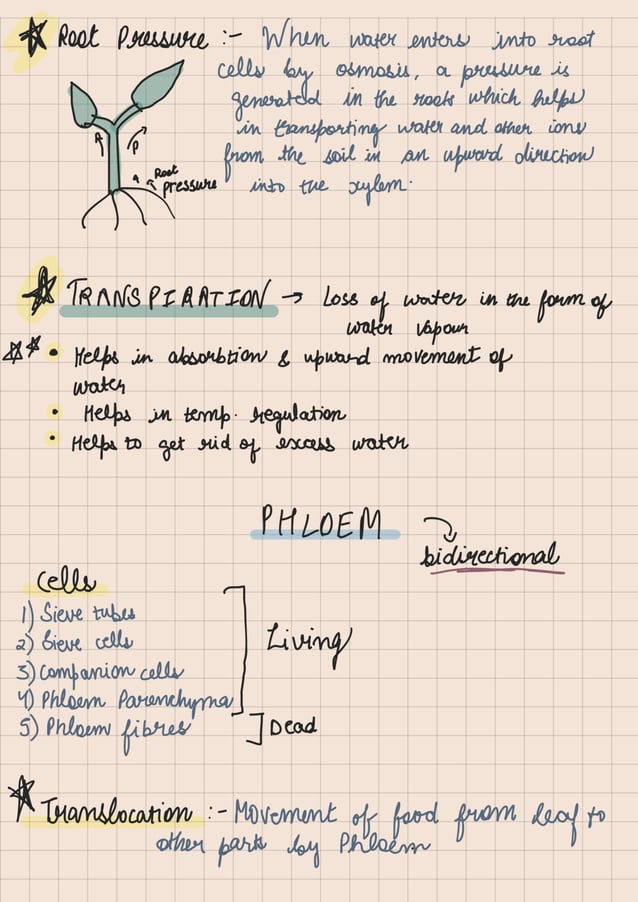 Root Pressure :- When water enters into root
cells by osmosis, a pressure is
generated in the roots which helps
in transporting water and other ions
from the soil in an upward direction
into the xylem.
P
Root
pressure
TRANSPIRATION → Loss of water in the form of
water vapour
• Helps in absorbtion & upward movement of
water
• Helps in temp. regulation
• Helps to get rid of excess water
PHLOEM
bidirectional
Cells
1) Sieve tubes
2) Sieve cells
3) Companion cells
4) Phloem Parenchyma
Living
5) Phloem fibres
Dead
Translocation :- Movement of food from leaf to
other parts by Phloem